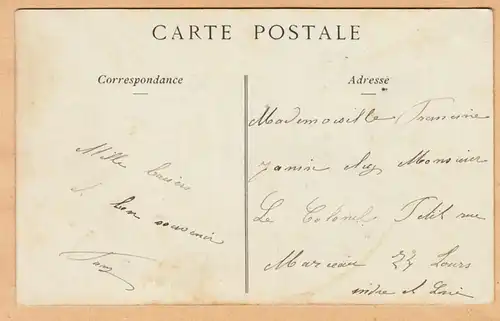 CARTE POSTALE
Correspondance
Mille baisers
et bon souvenir
Adresse
Mademoiselle
Janin chez Monsieur
Le Colonel Petit rue
Marceau 77 Tours
indre et Loire